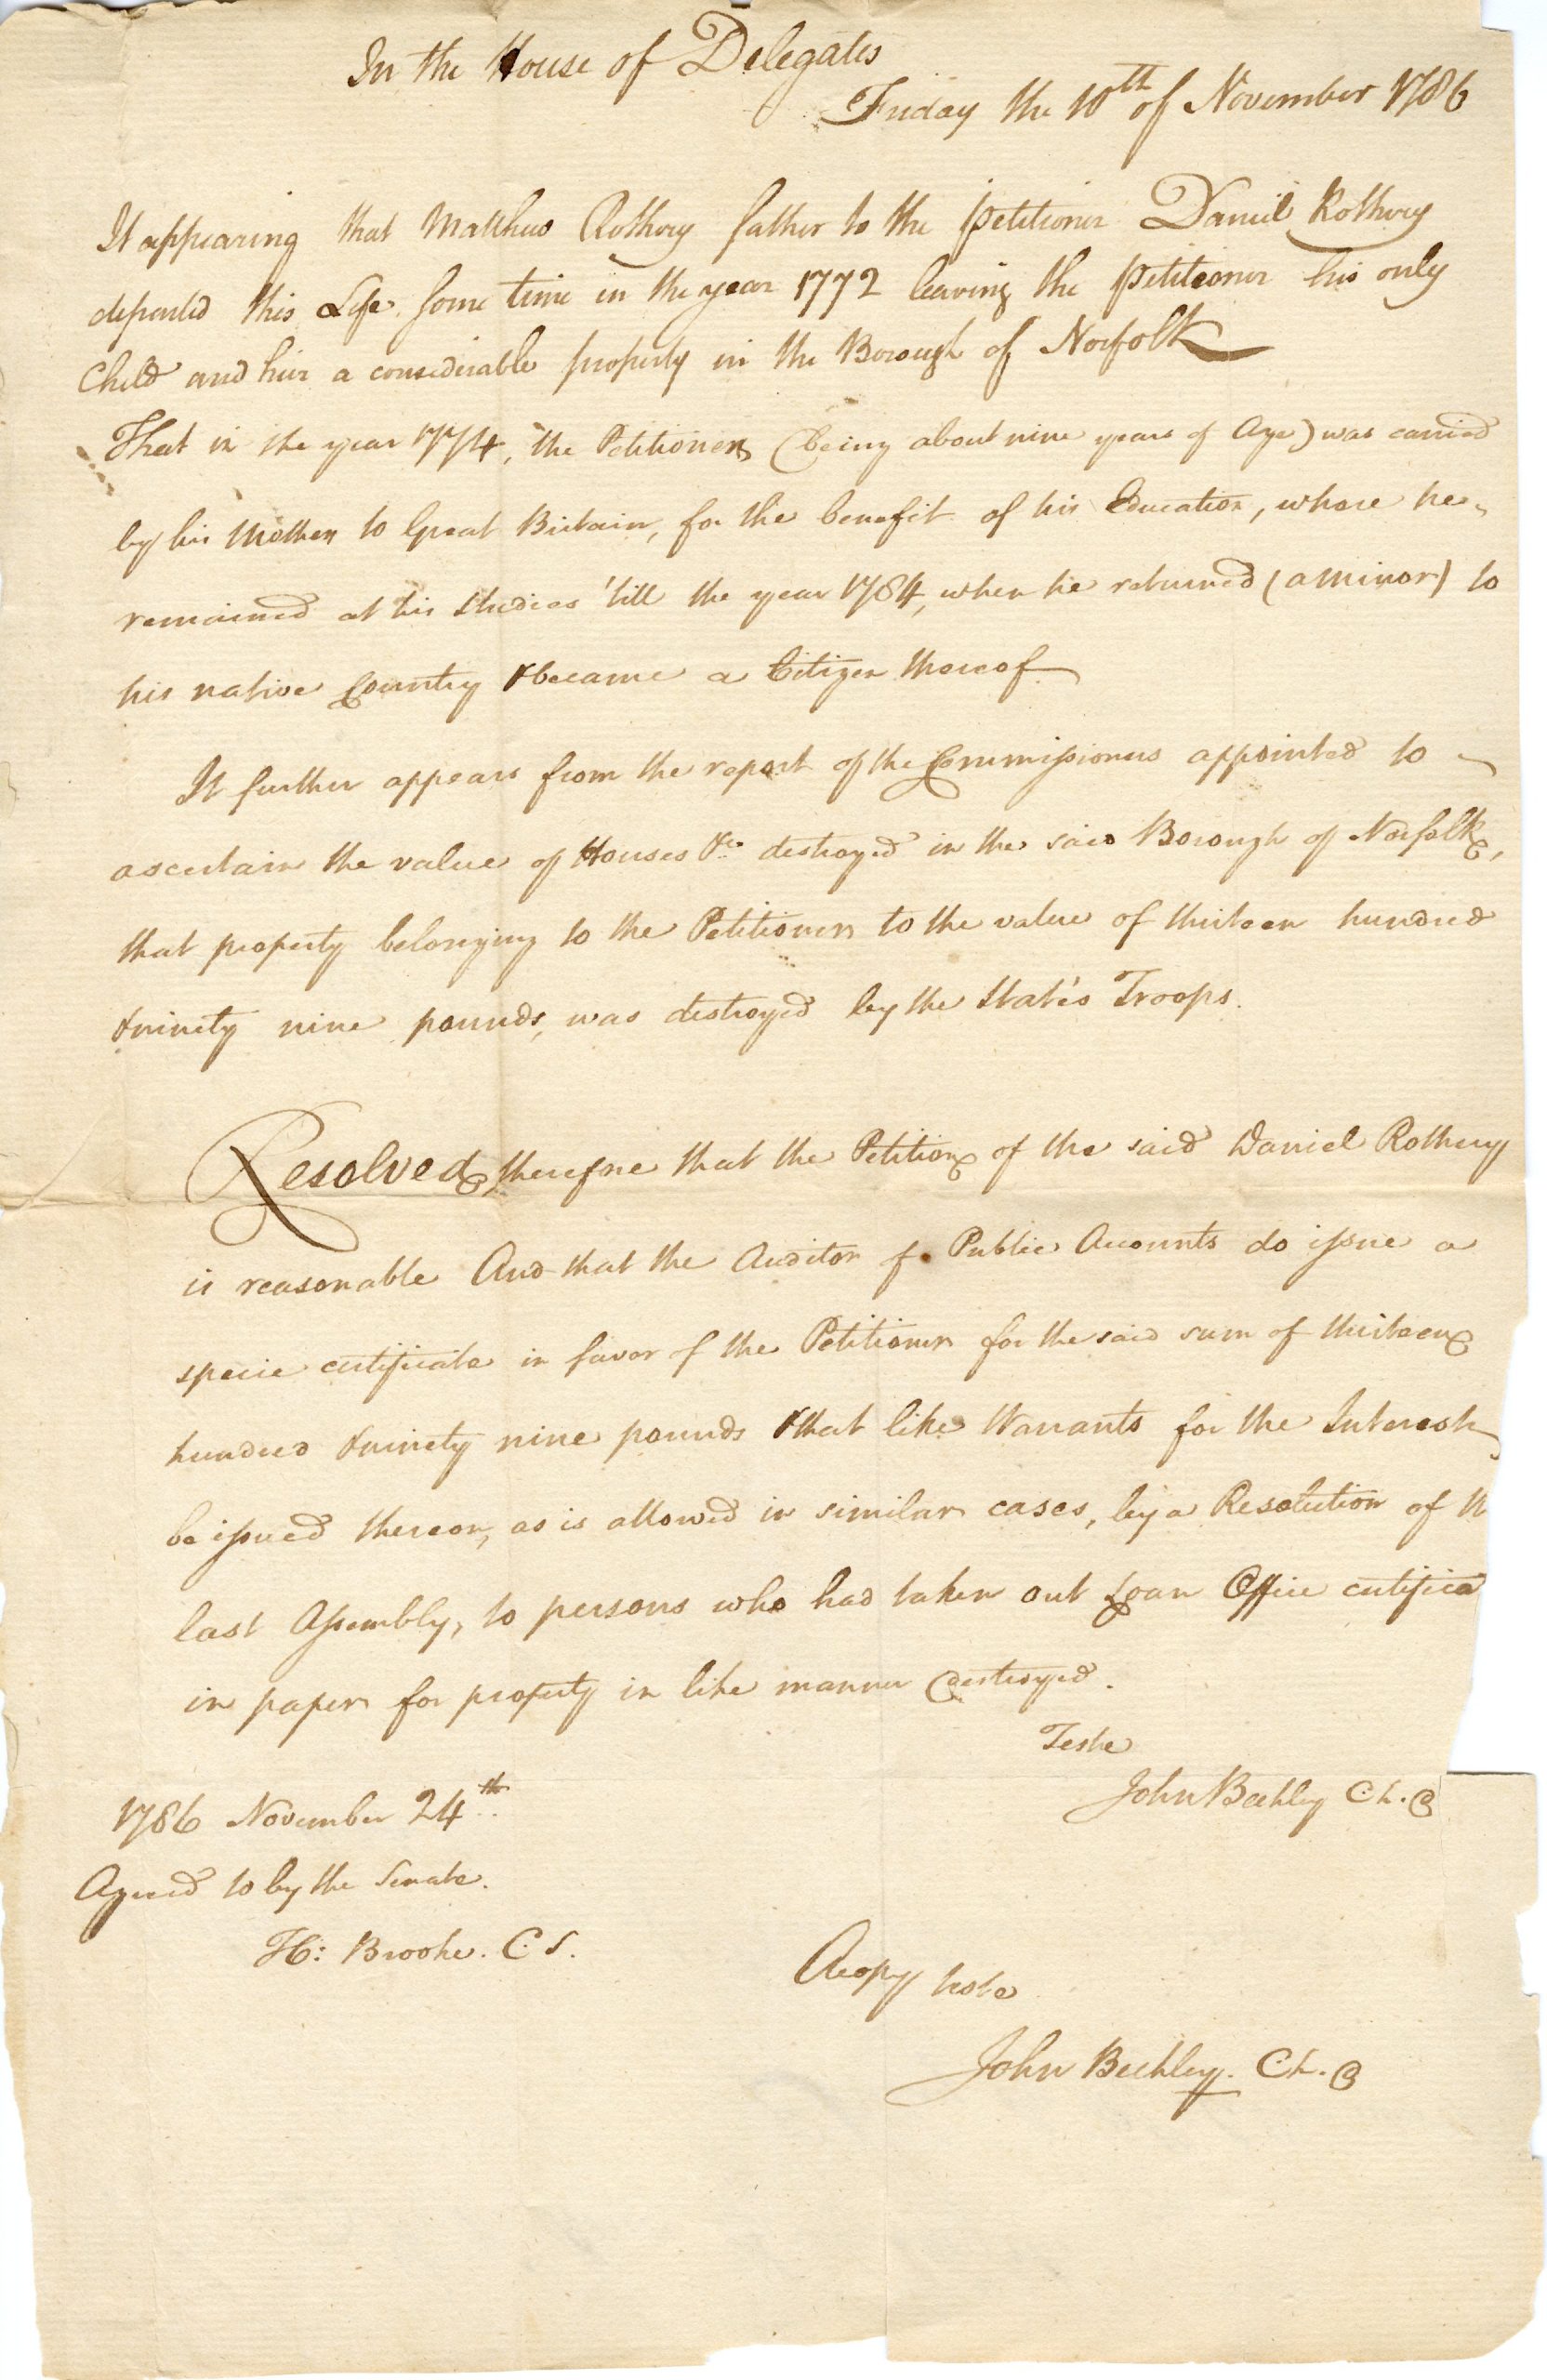 In the House of Delegates
Friday the 10th of November 1786
It appearing that Matthew Rothery father to the Petitioner Daniel Rothery
departed this Life some time in the year 1772 leaving the Petitioner his only
Child and heir a considerable property in the Borough of Norfolk
That in the year 1774, the Petitioner (being about nine years of Age) was carried
by his Mother to Great Britain, for the benefit of his Education, where he
remained at his studies 'till the year 1784, when he returned (a minor) to
his native Country & became a Citizen thereof
It further appears from the report of the Commissioners appointed to
ascertain the value of Houses &c. destroyed in the said Borough of Norfolk,
that property belonging to the Petitioner to the value of thirteen hundred
& ninety nine pounds, was destroyed by the State's Troops.
Resolved, therefore that the Petition of the said Daniel Rothery
is reasonable And that the Auditor of Public Accounts do issue a
specie certificate in favor of the Petitioner for the said sum of thirteen
hundred & ninety nine pounds & that like Warrants for the Interest
be issued thereon, as is allowed in similar cases, by a Resolution of th
last Assembly, to persons who had taken out Loan Office certifica
in paper for property in like manner destroyed.
Teste
John Beckley C.h.D
1786 November 24th
Agreed to by the Senate.
H: Brooke. C S.
A copy teste
John Beckley. C.h.D